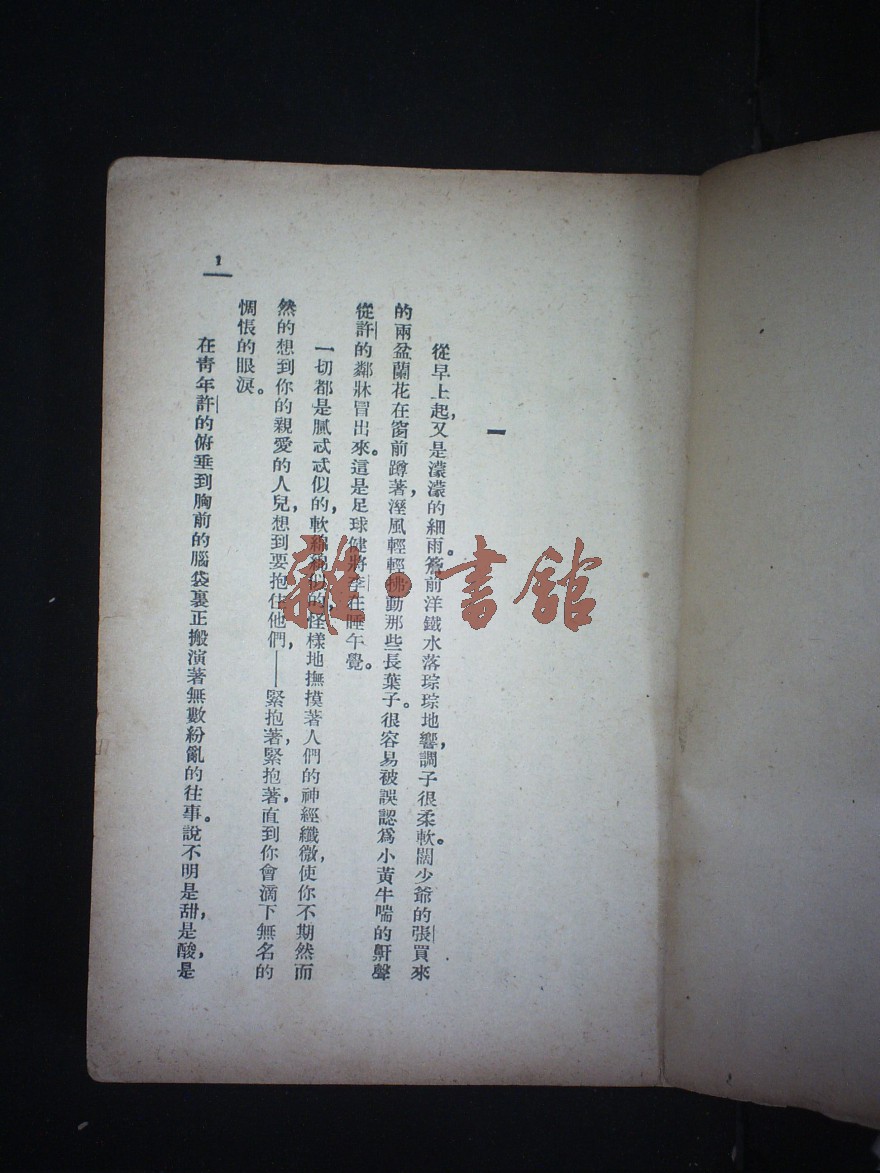 一
從早上起，又是濛濛的細雨。簷前洋鐵水落琮琮地響，調子很柔軟。闊少爺的張買來
的兩盆蘭花在窗前蹲著，溼風輕輕拂動那些長葉子。很容易被誤認爲小黃牛喘的鼾聲
從許的鄰牀冒出來。這是足球健將李在睡午覺。
一切都是膩忒忒似的，軟綿綿似的，怪樣地撫摸著人們的神經纖微，使你不期然而
然的想到你的親愛的人兒，想到要抱住他們，——緊抱著，緊抱著，直到你會滴下無名的
惆悵的眼淚。
在靑年許的俯垂到胸前的腦袋裏正搬演著無數紛亂的往事。說不明是甜，是酸，是
1
雜·書館